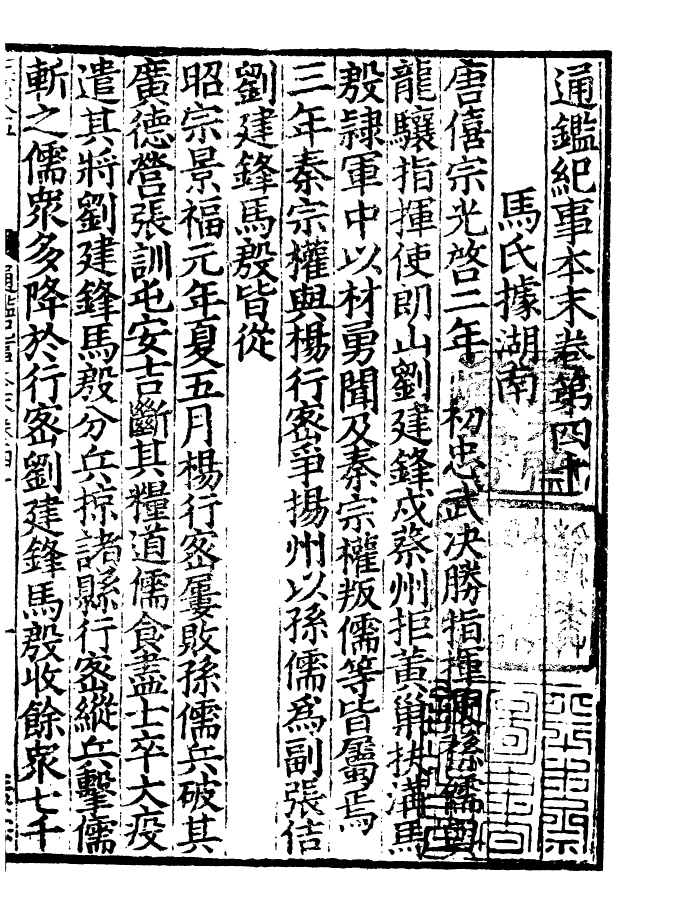 通鑑紀事本末卷第四十
馬氏據湖南
唐僖宗光啓二年　初忠武决勝指揮使孫儒與
龍驤指揮使朗山劉建鋒戍蔡州拒黃巢扶溝馬
殷隷軍中以材勇聞及秦宗權叛儒等皆屬焉
三年秦宗權與楊行密爭揚州以孫儒爲副張佶
劉建鋒馬殷皆從
昭宗景福元年夏五月楊行密屢敗孫儒兵破其
廣德營張訓屯安吉斷其糧道儒食盡士卒大疫
遣其將劉建鋒馬殷分兵掠諸縣行密縱兵擊儒
斬之儒衆多降於行密劉建鋒馬殷收餘衆七千